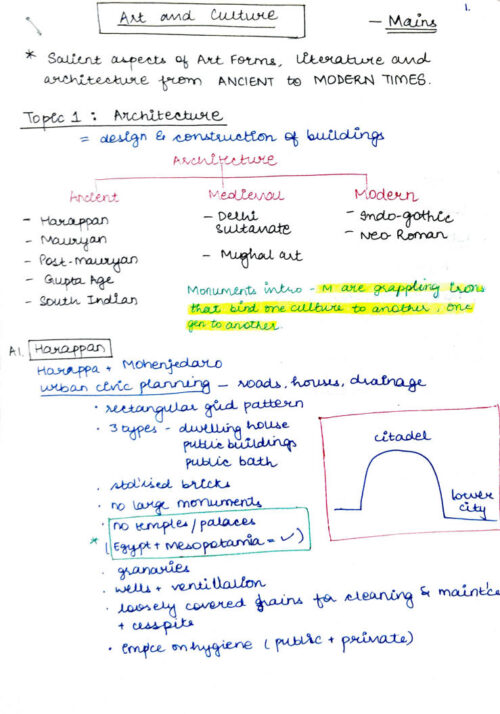 1.
Art and Culture
- Mains
* Salient aspects of Art Forms, Literature and
architecture from ANCIENT to MODERN TIMES.
Topic 1 : Architecture
= design & construction of buildings
Architecture
Ancient
- Harappan
- Mauryan
- Post-mauryan
- Gupta Age
- South Indian
Medieval
- Delhi
Sultanate
- Mughal art
Modern
- Indo-gothic
- Neo Roman
Monuments intro - M are grappling irons
that bind one culture to another, one
gen to another.
A1. Harappan
Harappa + Mohenjedaro
urban civic planning - roads, houses, drainage
· rectangular grid pattern
· 3 types - dwelling house
public buildings
public bath
· stdised bricks
· no large monuments
· no temples/palaces
* (Egypt + Mesopotamia = ✓)
· granaries
· wells + ventillation
· loosely covered drains for cleaning & maint'ce
+ cesspits
· empce on hygiene (public + private)
citadel
lower
city